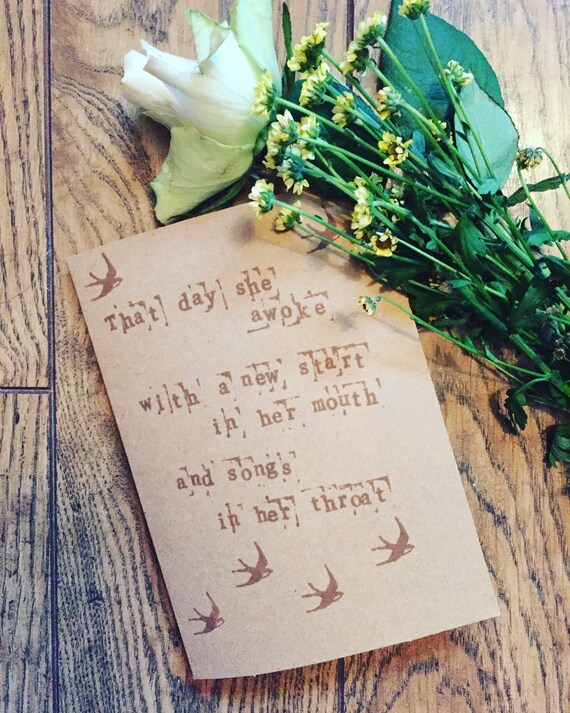 That day she
awoke
with a new start
in her mouth
and songs
in her throat